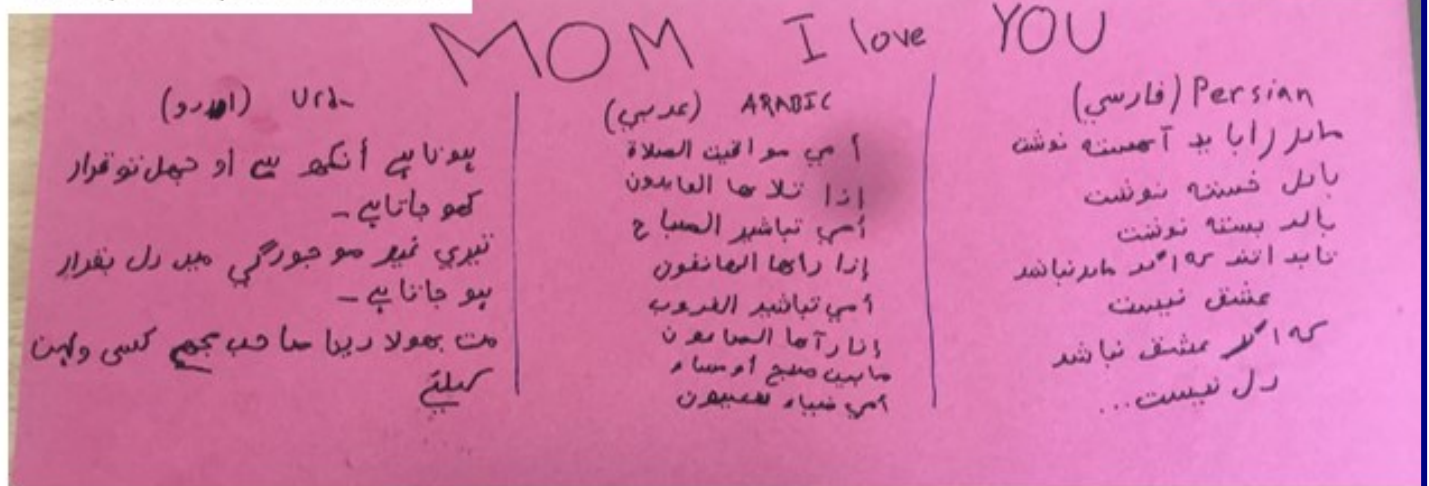 MOM I love YOU
(اردو) Urdu
ہوتا ہے أنکھ سے او جھل تو قرار
کھو جاتا ہے -
تیری غیر موجودگی میں دل بقرار
ہو جاتا ہے -
مت بھولا دینا صاحب مجھے کسی
کیلئے
(عربي) ARABIC
أمي مواقيت الصلاة
إذا تلاها العابدون
أمي تباشير الصباح
إذا رآها
أمي تباشير الغروب
إذا رآها الصائمون
مابين صبح أو مساء
أمي ضياء للعيون
(فارسي) Persian
مادر را باید آهسته نوشت
بادل خسته نوشت
با لب بسته نوشت
تابدانند که اگر مادر نباشد
عشق نیست
که اگر عشق نباشد
دل نیست...